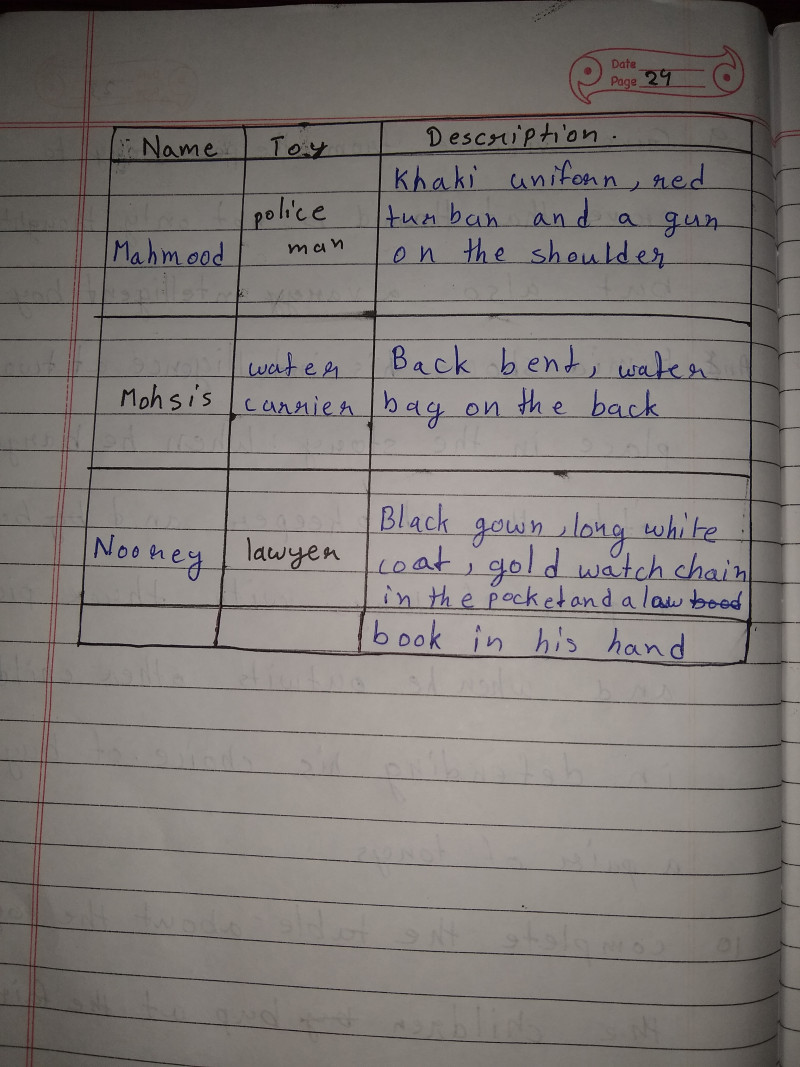 Date
Page 29
Name Toy Description.
Mahmood police man Khaki uniforn, red
turban and a gun
on the shoulder
Mohsis water carrier Back bent, water
bag on the back
Nooney lawyer Black gown, long white
coat, gold watch chain
in the pocket and a law bood
book in his hand